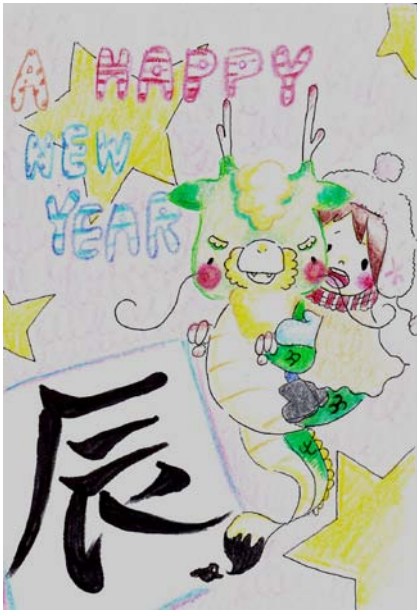 A HAPPY
NEW
YEAR
辰